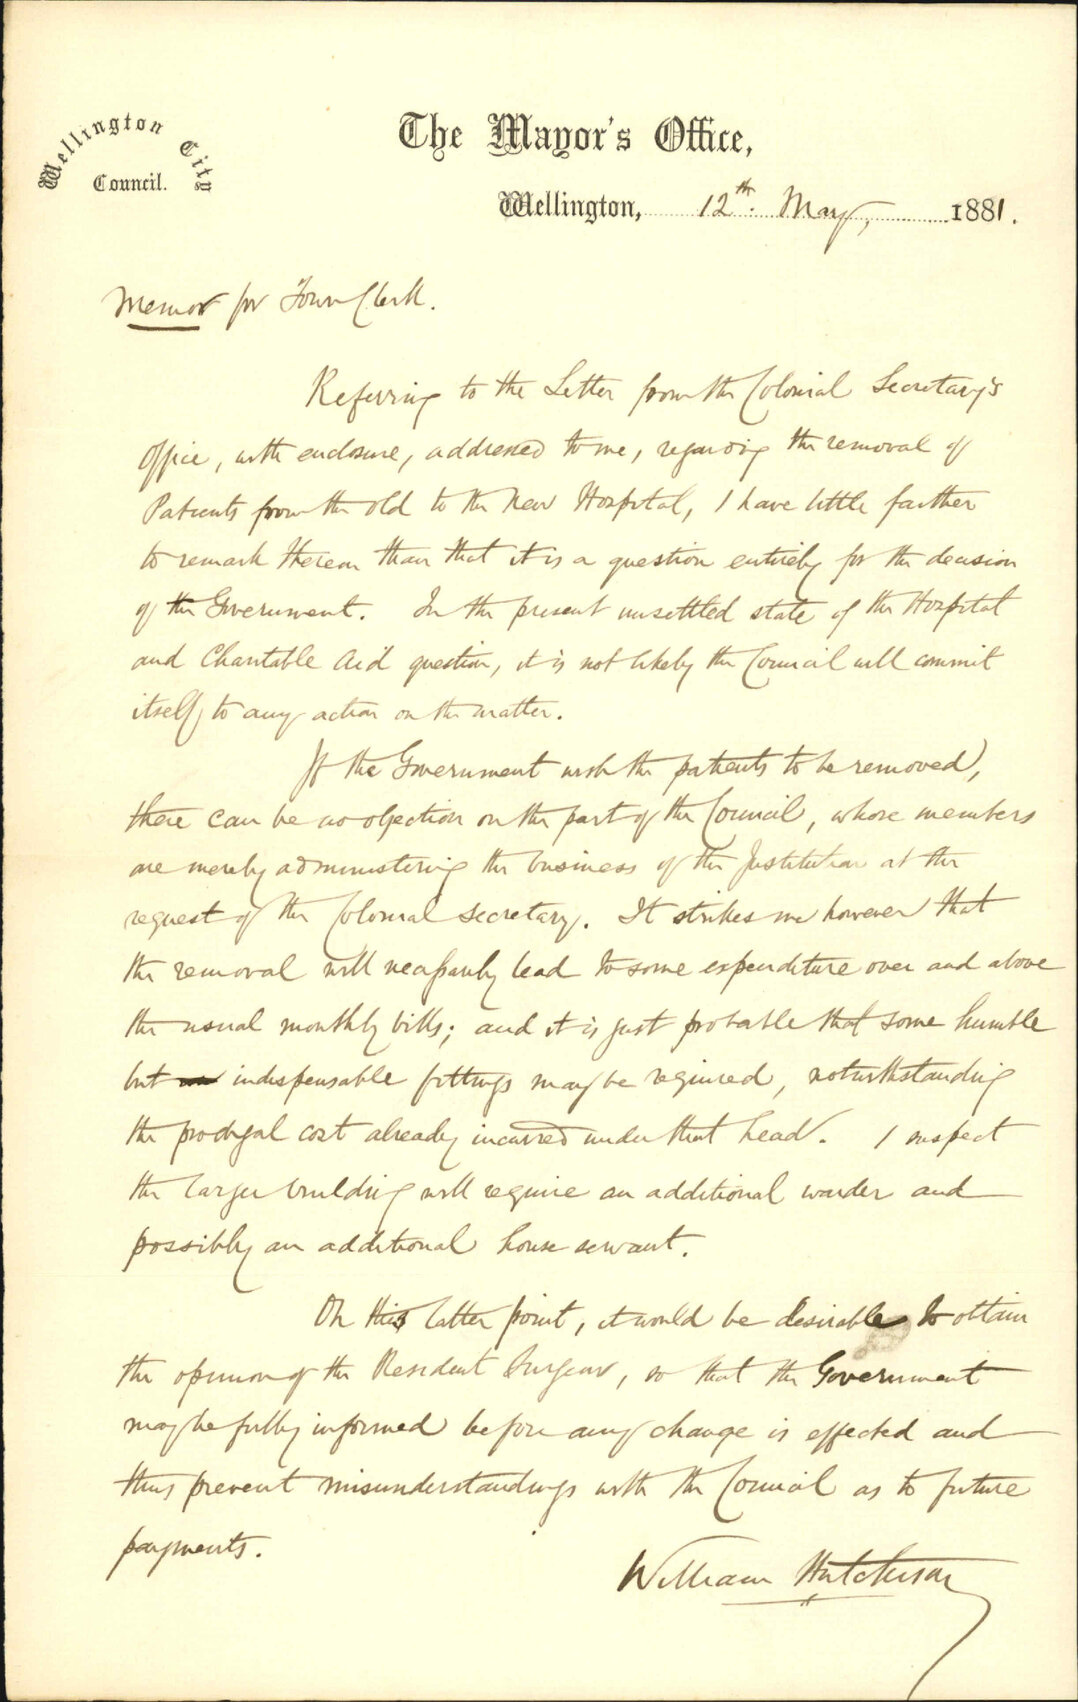 Wellington City
Council.
The Mayor's Office,
Wellington, 12th. May, 1881.
Memor for Town Clerk.
Referring to the Letter from the Colonial Secretary's
Office, with enclosure, addressed to me, regarding the removal of
Patients from the old to the new Hospital, I have little further
to remark thereon than that it is a question entirely for the decision
of the Government. In the present unsettled state of the Hospital
and Charitable Aid question, it is not likely the Council will commit
itself to any action on the matter.
If the Government wish the patients to be removed,
there can be no objection on the part of the Council, whose members
are merely administering the business of the Institution at the
request of the Colonial Secretary. It strikes me however that
the removal will necessarily lead to some expenditure over and above
the usual monthly bills; and it is just probable that some humble
but indispensable fittings may be required, notwithstanding
the prodigal cost already incurred under that head. I suspect
the larger building will require an additional warder and
possibly an additional house servant.
On this latter point, it would be desirable to obtain
the opinion of the Resident Surgeon, so that the Government
may be fully informed before any change is effected and
thus prevent misunderstandings with the Council as to future
payments.
William Hutchison